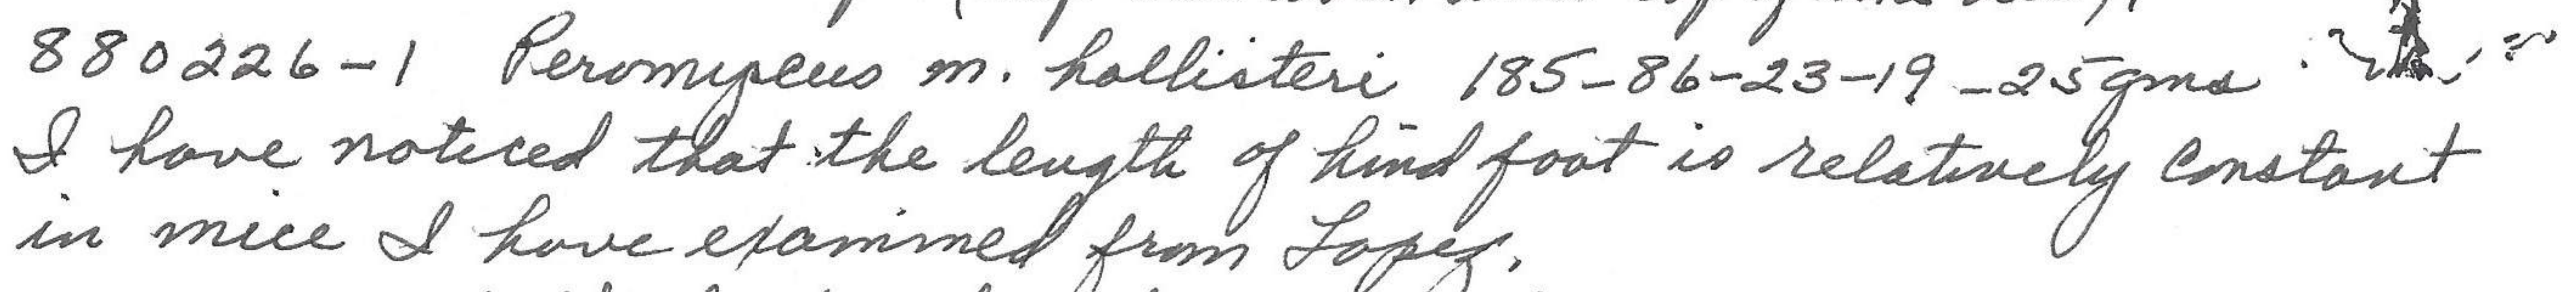 880226-1 Peromyscus m. hollisteri 185-86-23-19-25gms.
I have noticed that the length of hind foot is relatively constant
in mice I have examined from Lopez.